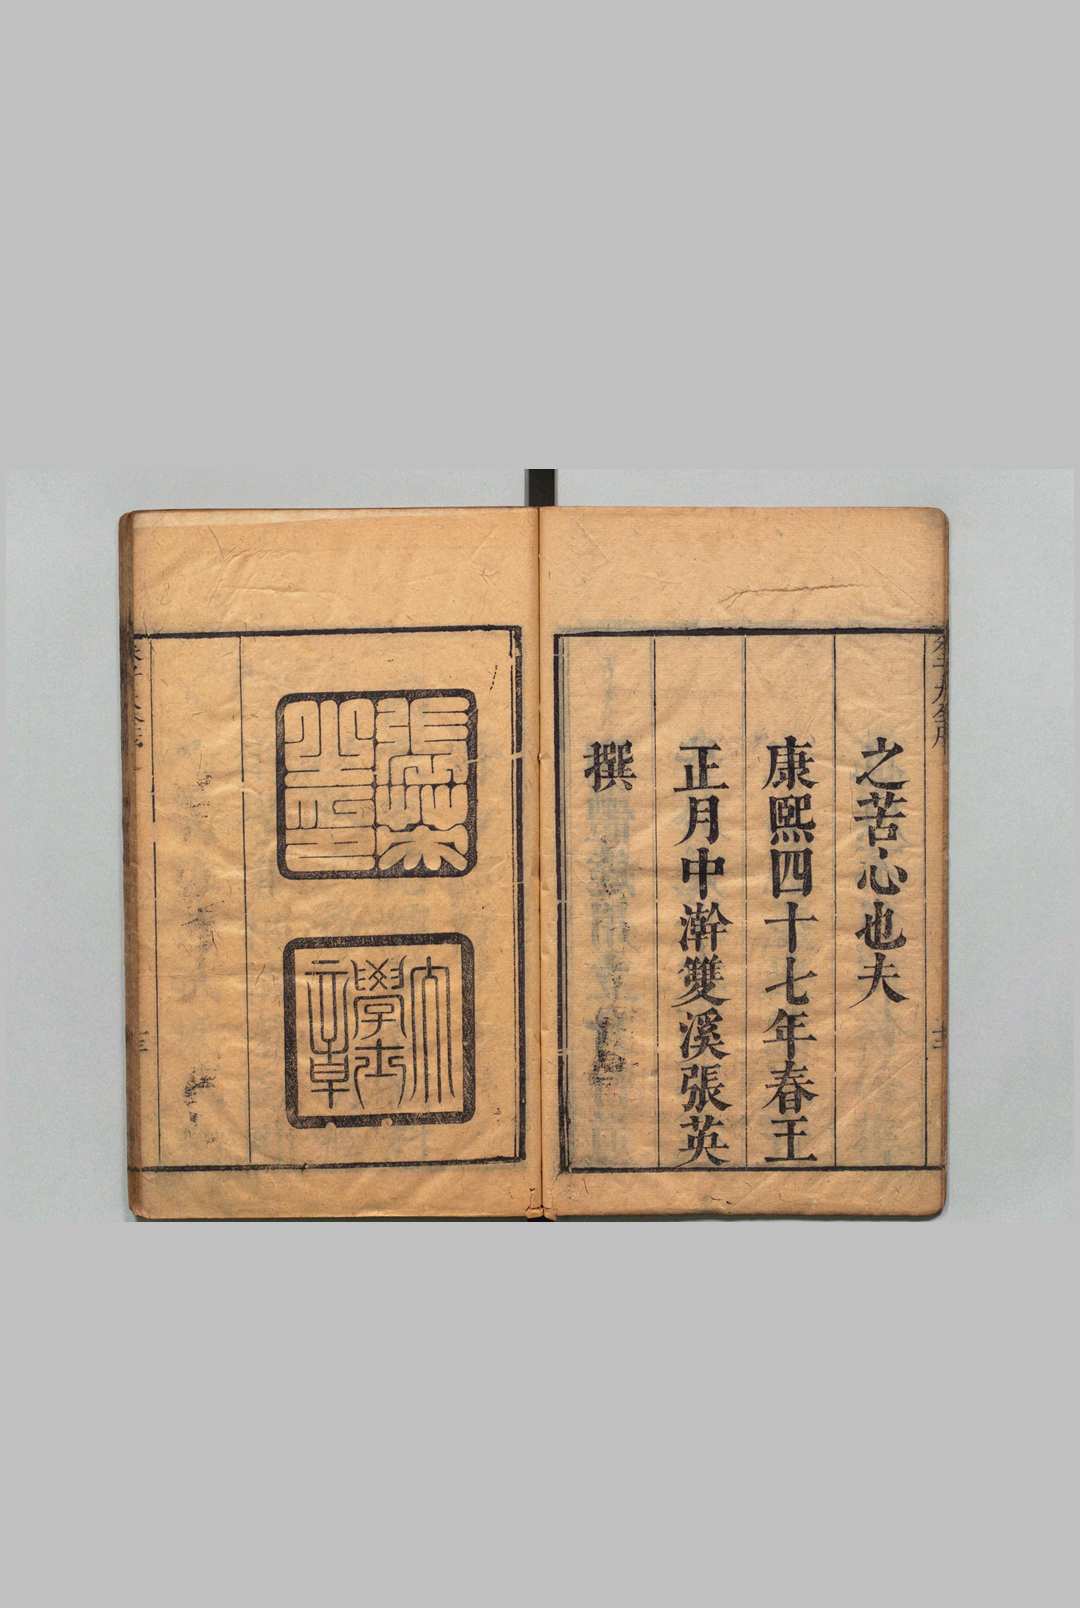 之苦心也夫
康熙四十七年春王
正月中澣雙溪張英
撰
張英之印
大學士章